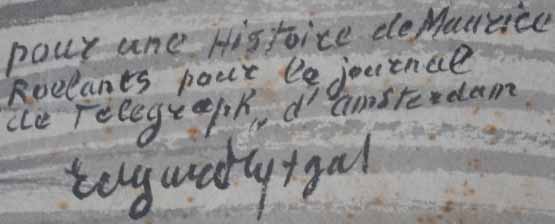 pour une Histoire de Maurice
Roelants pour le journal
de Telegraph, d'amsterdam